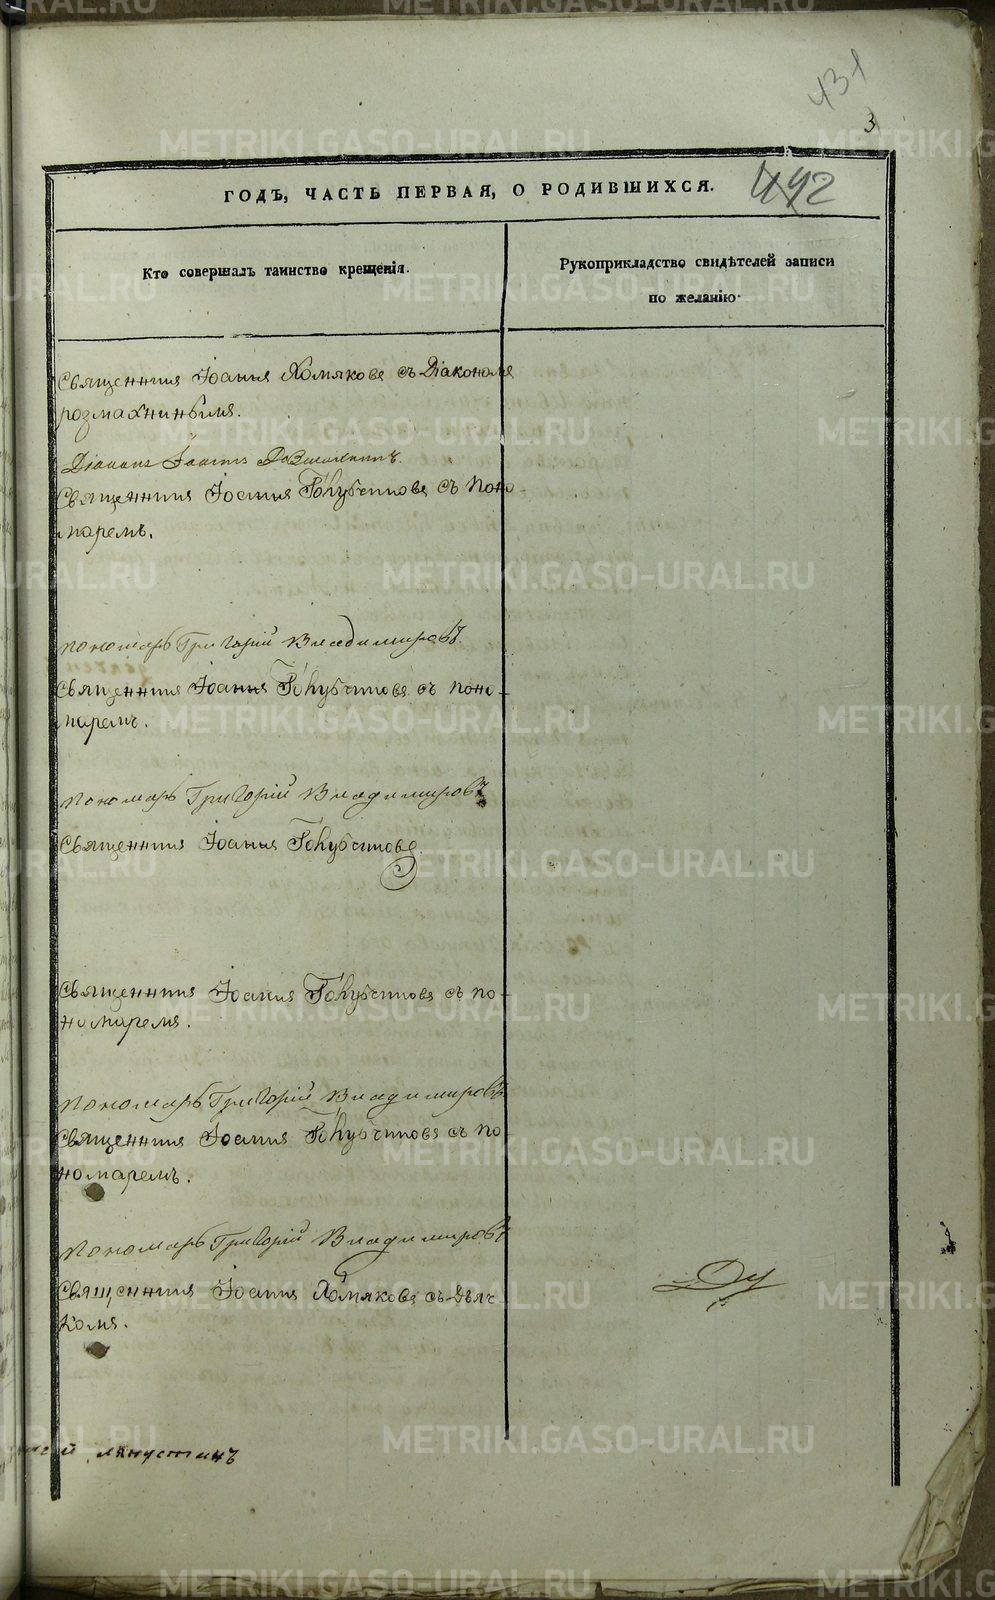 431
3
ГОДЪ, ЧАСТЬ ПЕРВАЯ, О РОДИВШИХСЯ. 442
Кто совершалъ таинство крещенія.
Рукоприкладство свидѣтелей записи
по желанію.
Священникъ Іоаннъ Хомяковъ съ Діакономъ
розмахнинымъ.
Діаконъ Іоаннъ
Священникъ Іоаннъ Голубчиковъ съ поно-
маремъ.
пономарь Григорій Владимировъ
Священникъ Іоаннъ Голубчиковъ съ поно-
маремъ.
пономарь Григорій Владимировъ
Священникъ Іоаннъ Голубчиковъ
Священникъ Іоаннъ Голубчиковъ съ по-
номаремъ.
пономарь Григорій Владимировъ
Священникъ Іоаннъ Голубчиковъ съ по
номаремъ.
пономарь Григорій Владимировъ
Священникъ Іоаннъ Хомяковъ съ дьяч-
комъ.
METRIKI.GASO-URAL.RU